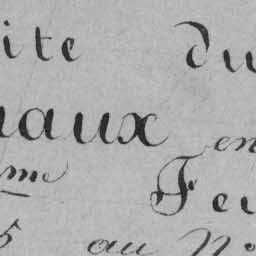 ite du
naux en
me Fe
5 au No